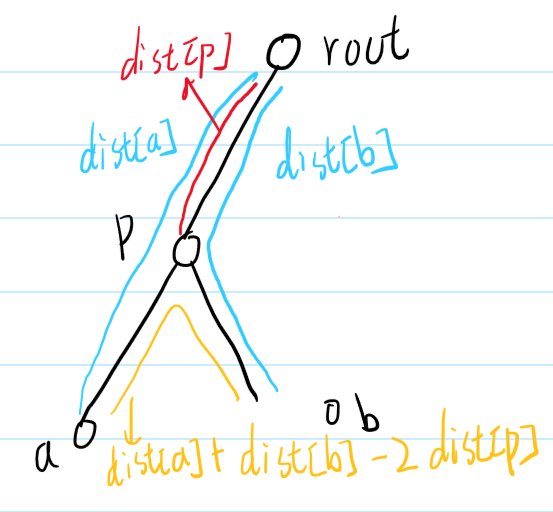 dist[p]
rout
dist[a]
dist[b]
p
b
a
dist[a]+ dist[b] -2 dist[p]